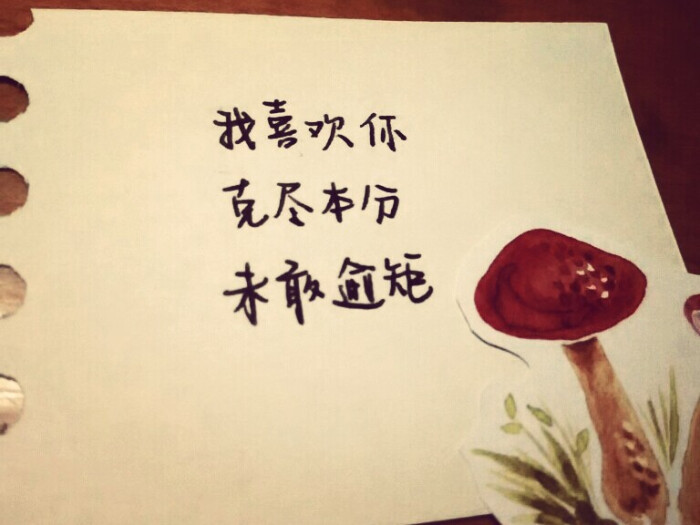 我喜欢你
克尽本分
未敢逾矩